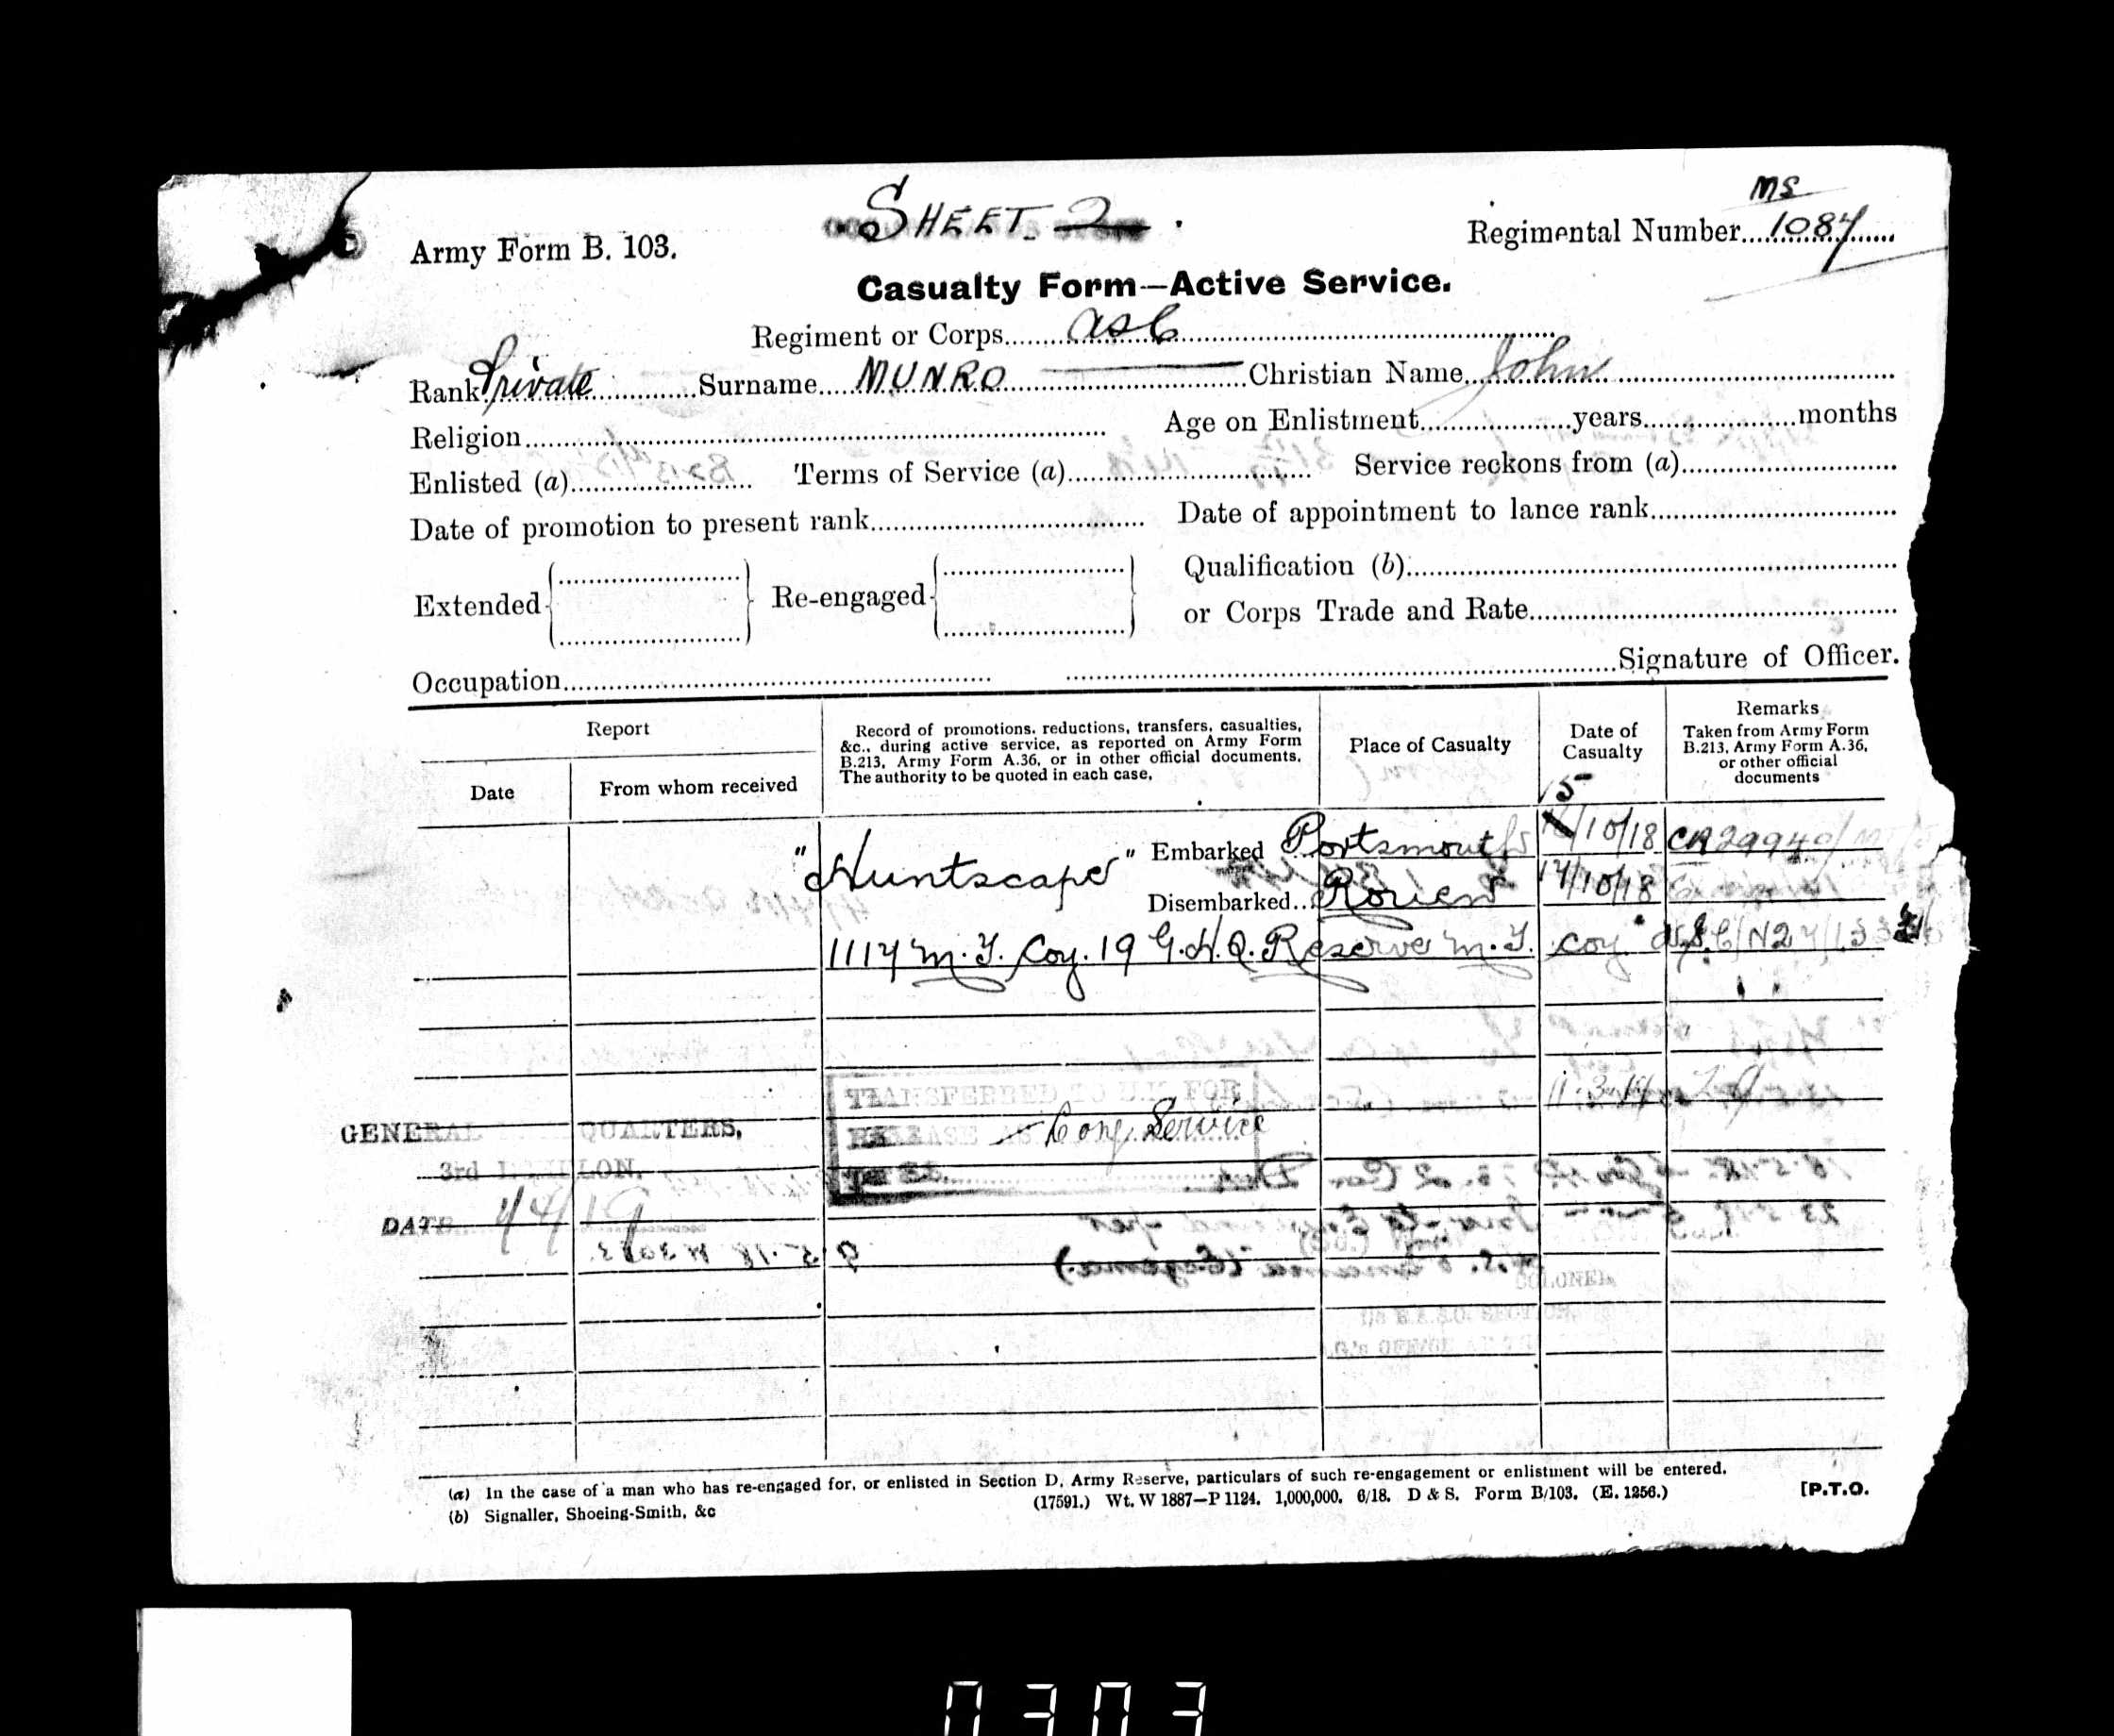 SHEET 2.
MS
Army Form B. 103.
Regimental Number....1087
Casualty Form—Active Service.
Regiment or Corps....ASC
Rank Private Surname....MUNRO Christian Name...John
Religion.... Age on Enlistment....years....months
Enlisted (a).... Terms of Service (a).... Service reckons from (a)....
Date of promotion to present rank.... Date of appointment to lance rank....
Extended Re-engaged Qualification (b)....
or Corps Trade and Rate....
Occupation.... ....Signature of Officer.
Report
Date
From whom received
Record of promotions, reductions, transfers, casualties,
&c., during active service, as reported on Army Form
B.213, Army Form A.36, or in other official documents.
The authority to be quoted in each case.
Place of Casualty
Date of
Casualty
Remarks
Taken from Army Form
B.213, Army Form A.36,
or other official
documents
15
"Huntscape" Embarked Portsmouth /10/18
Disembarked.. Rouen 17/10/18
1117 M.T. Coy. 19 G.H.Q. Reserve M.T. Coy
TRANSFERRED TO U.K. FOR
RELEASE AS Long Service
GENERAL QUARTERS,
3rd
DATE 4/4/19
COLONEL
(a) In the case of a man who has re-engaged for, or enlisted in Section D, Army Reserve, particulars of such re-engagement or enlistment will be entered.
(b) Signaller, Shoeing-Smith, &c
(17591.) Wt. W 1887—P 1124. 1,000,000. 6/18. D & S. Form B/103. (E. 1256.)
[P.T.O.
0303